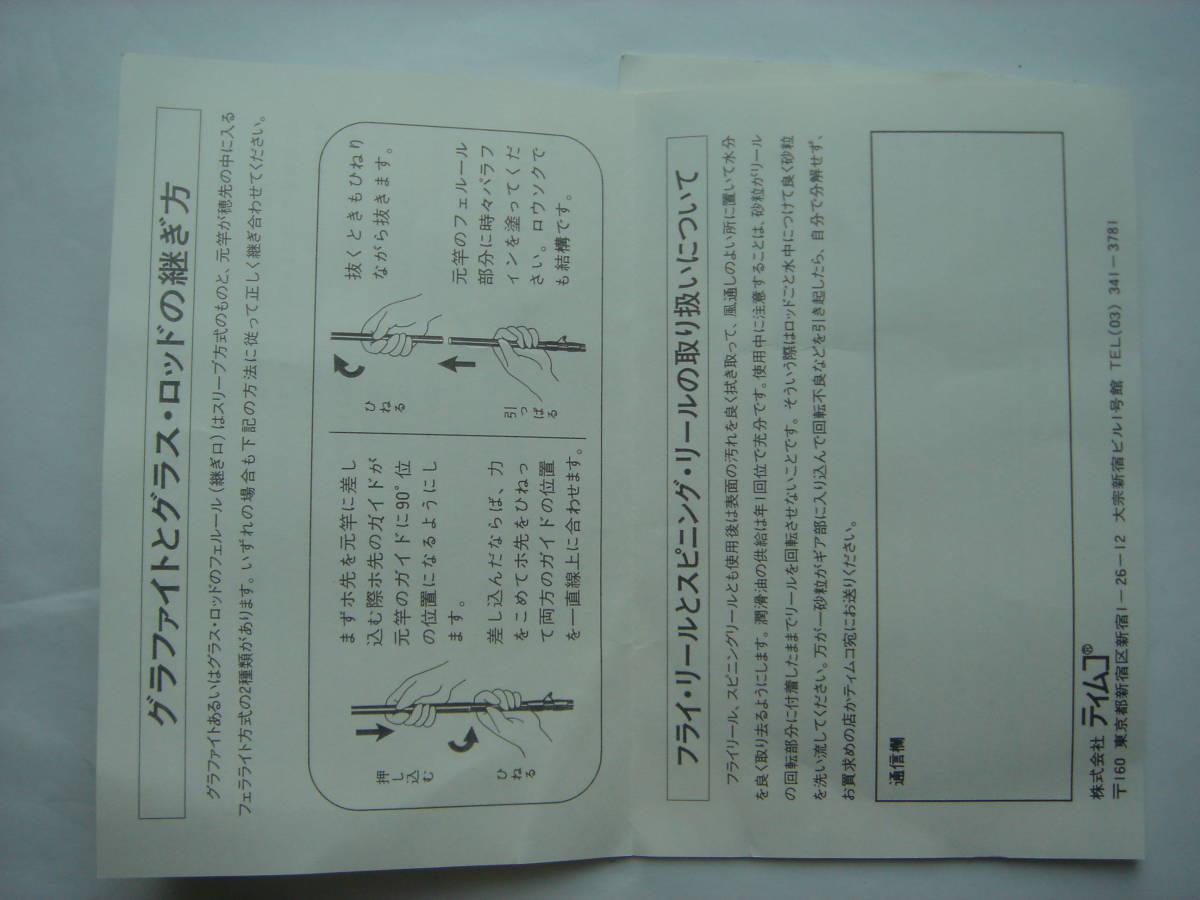 グラファイトとグラス・ロッドの継ぎ方
グラファイトあるいはグラス・ロッドのフェルール(継ぎ口)はスリーブ方式のものと、元竿が穂先の中に入る
フェラライト方式の2種類があります。いずれの場合も下記の方法に従って正しく継ぎ合わせてください。
押し込む
ひねる
まずホ先を元竿に差し
込む際ホ先のガイドが
元竿のガイドに90°位
の位置になるようにし
ます。
差し込んだならば、力
をこめてホ先をひねっ
て両方のガイドの位置
を一直線上に合わせます。
ひねる
引っぱる
抜くときもひねり
ながら抜きます。
元竿のフェルール
部分に時々パラフ
ィンを塗ってくだ
さい。ロウソクで
も結構です。
フライ・リールとスピニング・リールの取り扱いについて
フライリール、スピニングリールとも使用後は表面の汚れを良く拭き取って、風通しのよい所に置いて水分
を良く取り去るようにします。潤滑油の供給は年1回位で充分です。使用中に注意することは、砂粒がリール
の回転部分に付着したままでリールを回転させないことです。そういう際はロッドごと水中につけて良く砂粒
を洗い流してください。万が一砂粒がギア部に入り込んで回転不良などを引き起したら、自分で分解せず、
お買求めの店かティムコ宛にお送りください。
通信欄
株式会社 ティムコ®
〒160 東京都新宿区新宿1-26-12 大宗新宿ビル1号館 TEL(03) 341-3781